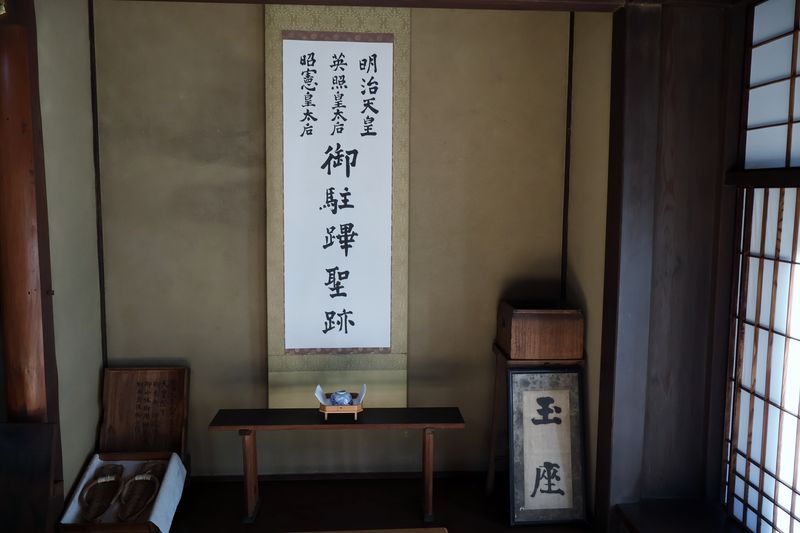 明治天皇
英照皇太后
昭憲皇太后
御駐蹕聖跡
玉座